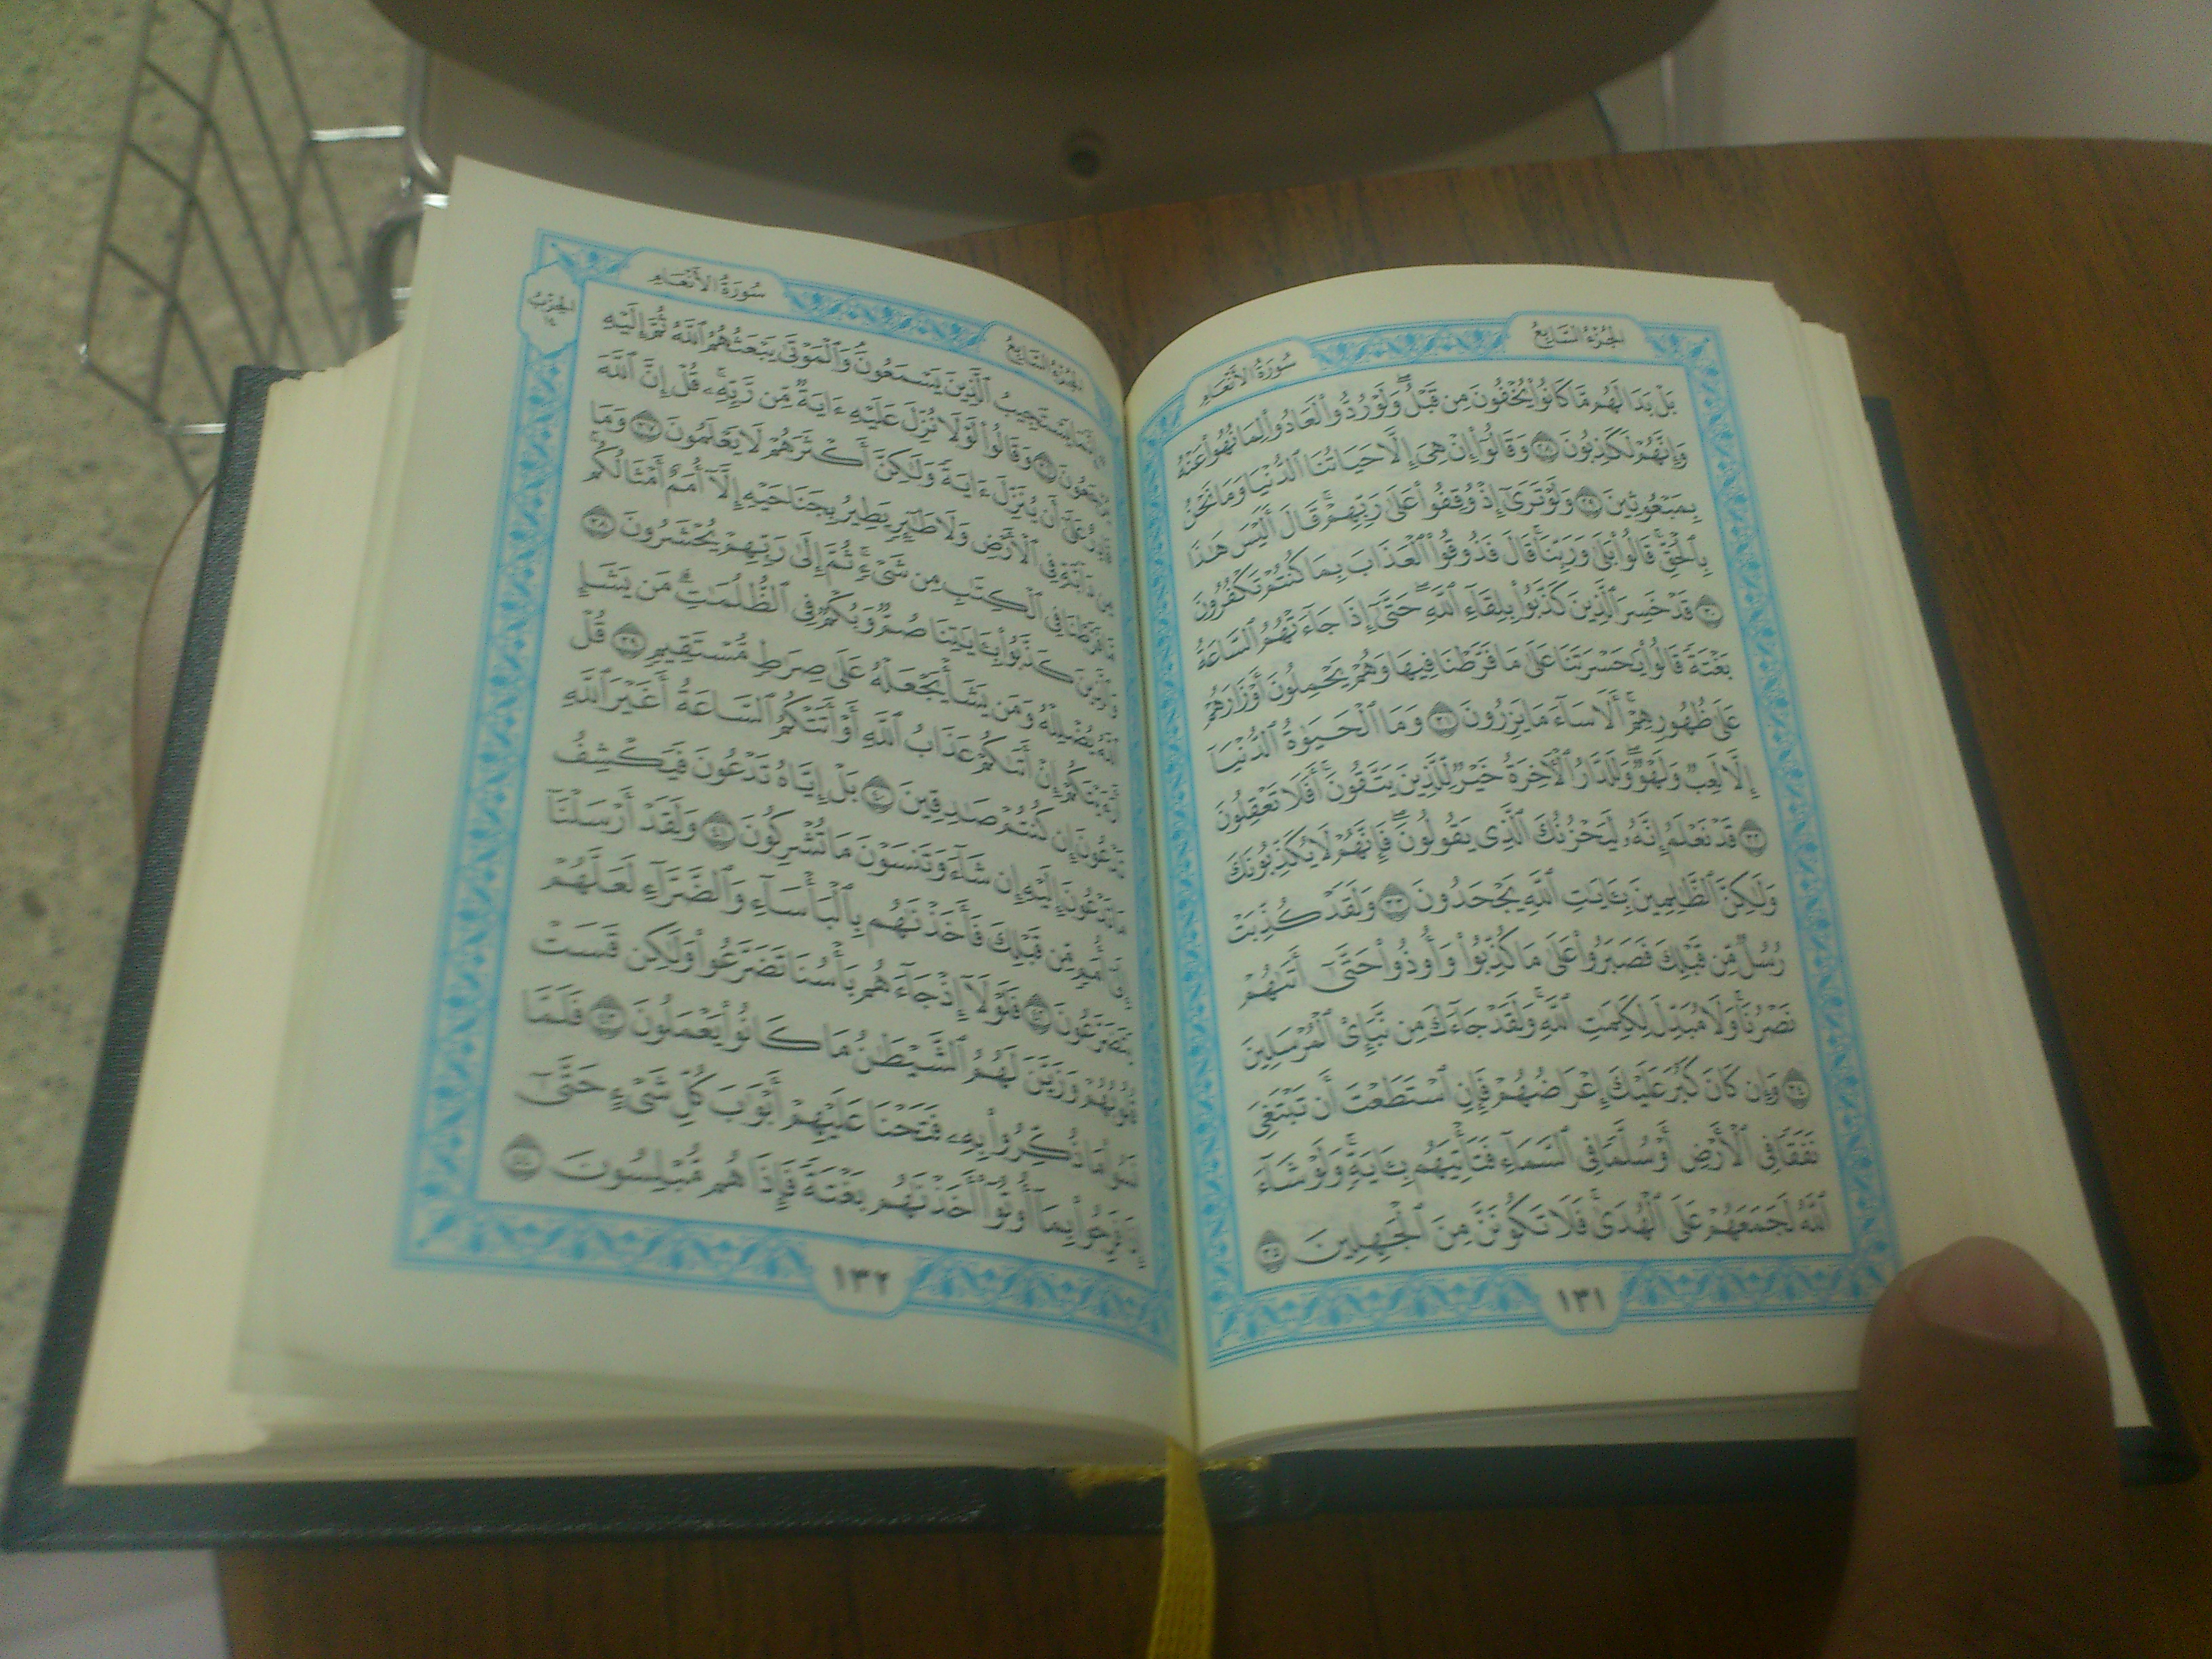 الجُزْءُ السَّابِعُ
سُورَةُ الأَنْعَامِ
بَلْ بَدَا لَهُم مَّا كَانُوا۟ يُخْفُونَ مِن قَبْلُ ۖ وَلَوْ رُدُّوا۟ لَعَادُوا۟ لِمَا نُهُوا۟ عَنْهُ
وَإِنَّهُمْ لَكَـٰذِبُونَ ٢٨ وَقَالُوٓا۟ إِنْ هِىَ إِلَّا حَيَاتُنَا ٱلدُّنْيَا وَمَا نَحْنُ
بِمَبْعُوثِينَ ٢٩ وَلَوْ تَرَىٰٓ إِذْ وُقِفُوا۟ عَلَىٰ رَبِّهِمْ ۚ قَالَ أَلَيْسَ هَـٰذَا
بِٱلْحَقِّ ۚ قَالُوا۟ بَلَىٰ وَرَبِّنَا ۚ قَالَ فَذُوقُوا۟ ٱلْعَذَابَ بِمَا كُنتُمْ تَكْفُرُونَ
٣٠ قَدْ خَسِرَ ٱلَّذِينَ كَذَّبُوا۟ بِلِقَآءِ ٱللَّهِ ۖ حَتَّىٰٓ إِذَا جَآءَتْهُمُ ٱلسَّاعَةُ
بَغْتَةً قَالُوا۟ يَـٰحَسْرَتَنَا عَلَىٰ مَا فَرَّطْنَا فِيهَا وَهُمْ يَحْمِلُونَ أَوْزَارَهُمْ
عَلَىٰ ظُهُورِهِمْ ۚ أَلَا سَآءَ مَا يَزِرُونَ ٣١ وَمَا ٱلْحَيَوٰةُ ٱلدُّنْيَآ
إِلَّا لَعِبٌ وَلَهْوٌ ۖ وَلَلدَّارُ ٱلْـَٔاخِرَةُ خَيْرٌ لِّلَّذِينَ يَتَّقُونَ ۗ أَفَلَا تَعْقِلُونَ
٣٢ قَدْ نَعْلَمُ إِنَّهُۥ لَيَحْزُنُكَ ٱلَّذِى يَقُولُونَ ۖ فَإِنَّهُمْ لَا يُكَذِّبُونَكَ
وَلَـٰكِنَّ ٱلظَّـٰلِمِينَ بِـَٔايَـٰتِ ٱللَّهِ يَجْحَدُونَ ٣٣ وَلَقَدْ كُذِّبَتْ
رُسُلٌ مِّن قَبْلِكَ فَصَبَرُوا۟ عَلَىٰ مَا كُذِّبُوا۟ وَأُوذُوا۟ حَتَّىٰٓ أَتَىٰهُمْ
نَصْرُنَا ۚ وَلَا مُبَدِّلَ لِكَلِمَـٰتِ ٱللَّهِ ۚ وَلَقَدْ جَآءَكَ مِن نَّبَإِى۟ ٱلْمُرْسَلِينَ
٣٤ وَإِن كَانَ كَبُرَ عَلَيْكَ إِعْرَاضُهُمْ فَإِنِ ٱسْتَطَعْتَ أَن تَبْتَغِىَ
نَفَقًا فِى ٱلْأَرْضِ أَوْ سُلَّمًا فِى ٱلسَّمَآءِ فَتَأْتِيَهُم بِـَٔايَةٍ ۚ وَلَوْ شَآءَ
ٱللَّهُ لَجَمَعَهُمْ عَلَى ٱلْهُدَىٰ ۚ فَلَا تَكُونَنَّ مِنَ ٱلْجَـٰهِلِينَ ٣٥
١٣١
الجُزْءُ السَّابِعُ
سُورَةُ الأَنْعَامِ
الحِزْبُ
١٤
۞ إِنَّمَا يَسْتَجِيبُ ٱلَّذِينَ يَسْمَعُونَ ۘ وَٱلْمَوْتَىٰ يَبْعَثُهُمُ ٱللَّهُ ثُمَّ إِلَيْهِ
يُرْجَعُونَ ٣٦ وَقَالُوا۟ لَوْلَا نُزِّلَ عَلَيْهِ ءَايَةٌ مِّن رَّبِّهِۦ ۚ قُلْ إِنَّ ٱللَّهَ
قَادِرٌ عَلَىٰٓ أَن يُنَزِّلَ ءَايَةً وَلَـٰكِنَّ أَكْثَرَهُمْ لَا يَعْلَمُونَ ٣٧ وَمَا
مِن دَآبَّةٍ فِى ٱلْأَرْضِ وَلَا طَـٰٓئِرٍ يَطِيرُ بِجَنَاحَيْهِ إِلَّآ أُمَمٌ أَمْثَالُكُم ۚ
مَّا فَرَّطْنَا فِى ٱلْكِتَـٰبِ مِن شَىْءٍ ۚ ثُمَّ إِلَىٰ رَبِّهِمْ يُحْشَرُونَ ٣٨
وَٱلَّذِينَ كَذَّبُوا۟ بِـَٔايَـٰتِنَا صُمٌّ وَبُكْمٌ فِى ٱلظُّلُمَـٰتِ ۗ مَن يَشَإِ
ٱللَّهُ يُضْلِلْهُ وَمَن يَشَأْ يَجْعَلْهُ عَلَىٰ صِرَٰطٍ مُّسْتَقِيمٍ ٣٩ قُلْ
أَرَءَيْتَكُمْ إِنْ أَتَىٰكُمْ عَذَابُ ٱللَّهِ أَوْ أَتَتْكُمُ ٱلسَّاعَةُ أَغَيْرَ ٱللَّهِ
تَدْعُونَ إِن كُنتُمْ صَـٰدِقِينَ ٤٠ بَلْ إِيَّاهُ تَدْعُونَ فَيَكْشِفُ
مَا تَدْعُونَ إِلَيْهِ إِن شَآءَ وَتَنسَوْنَ مَا تُشْرِكُونَ ٤١ وَلَقَدْ أَرْسَلْنَآ
إِلَىٰٓ أُمَمٍ مِّن قَبْلِكَ فَأَخَذْنَـٰهُم بِٱلْبَأْسَآءِ وَٱلضَّرَّآءِ لَعَلَّهُمْ
يَتَضَرَّعُونَ ٤٢ فَلَوْلَآ إِذْ جَآءَهُم بَأْسُنَا تَضَرَّعُوا۟ وَلَـٰكِن قَسَتْ
قُلُوبُهُمْ وَزَيَّنَ لَهُمُ ٱلشَّيْطَـٰنُ مَا كَانُوا۟ يَعْمَلُونَ ٤٣ فَلَمَّا
نَسُوا۟ مَا ذُكِّرُوا۟ بِهِۦ فَتَحْنَا عَلَيْهِمْ أَبْوَٰبَ كُلِّ شَىْءٍ حَتَّىٰٓ
إِذَا فَرِحُوا۟ بِمَآ أُوتُوٓا۟ أَخَذْنَـٰهُم بَغْتَةً فَإِذَا هُم مُّبْلِسُونَ ٤٤
١٣٢